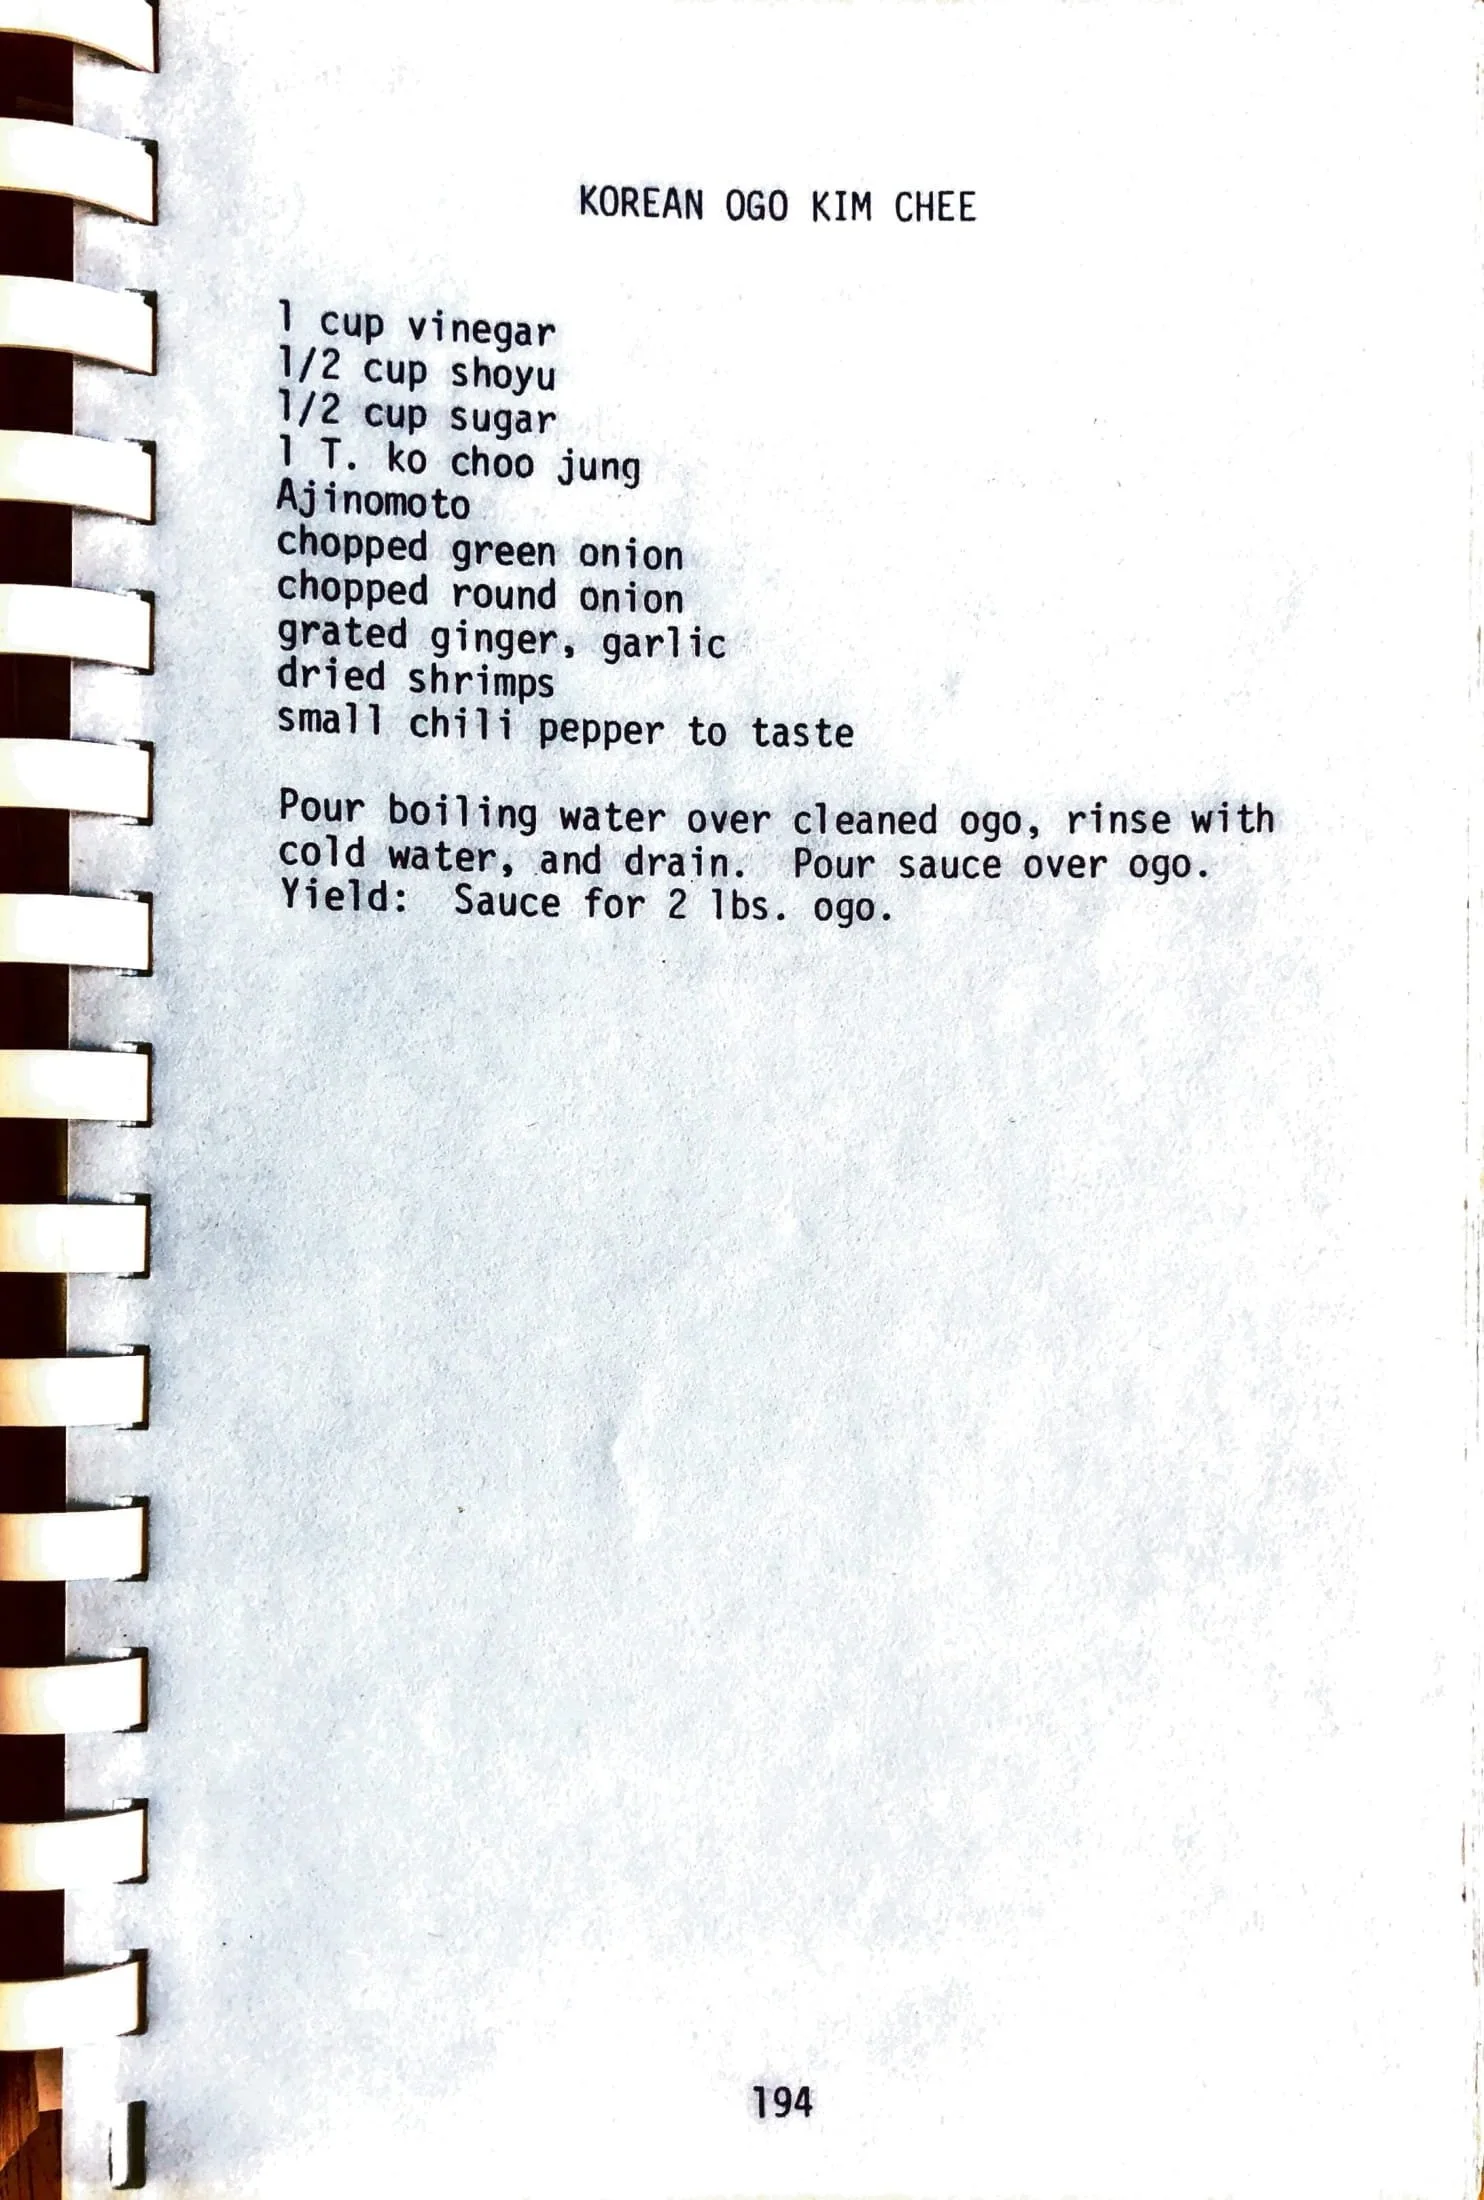 KOREAN OGO KIM CHEE
1 cup vinegar
1/2 cup shoyu
1/2 cup sugar
1 T. ko choo jung
Ajinomoto
chopped green onion
chopped round onion
grated ginger, garlic
dried shrimps
small chili pepper to taste
Pour boiling water over cleaned ogo, rinse with
cold water, and drain. Pour sauce over ogo.
Yield: Sauce for 2 lbs. ogo.
194